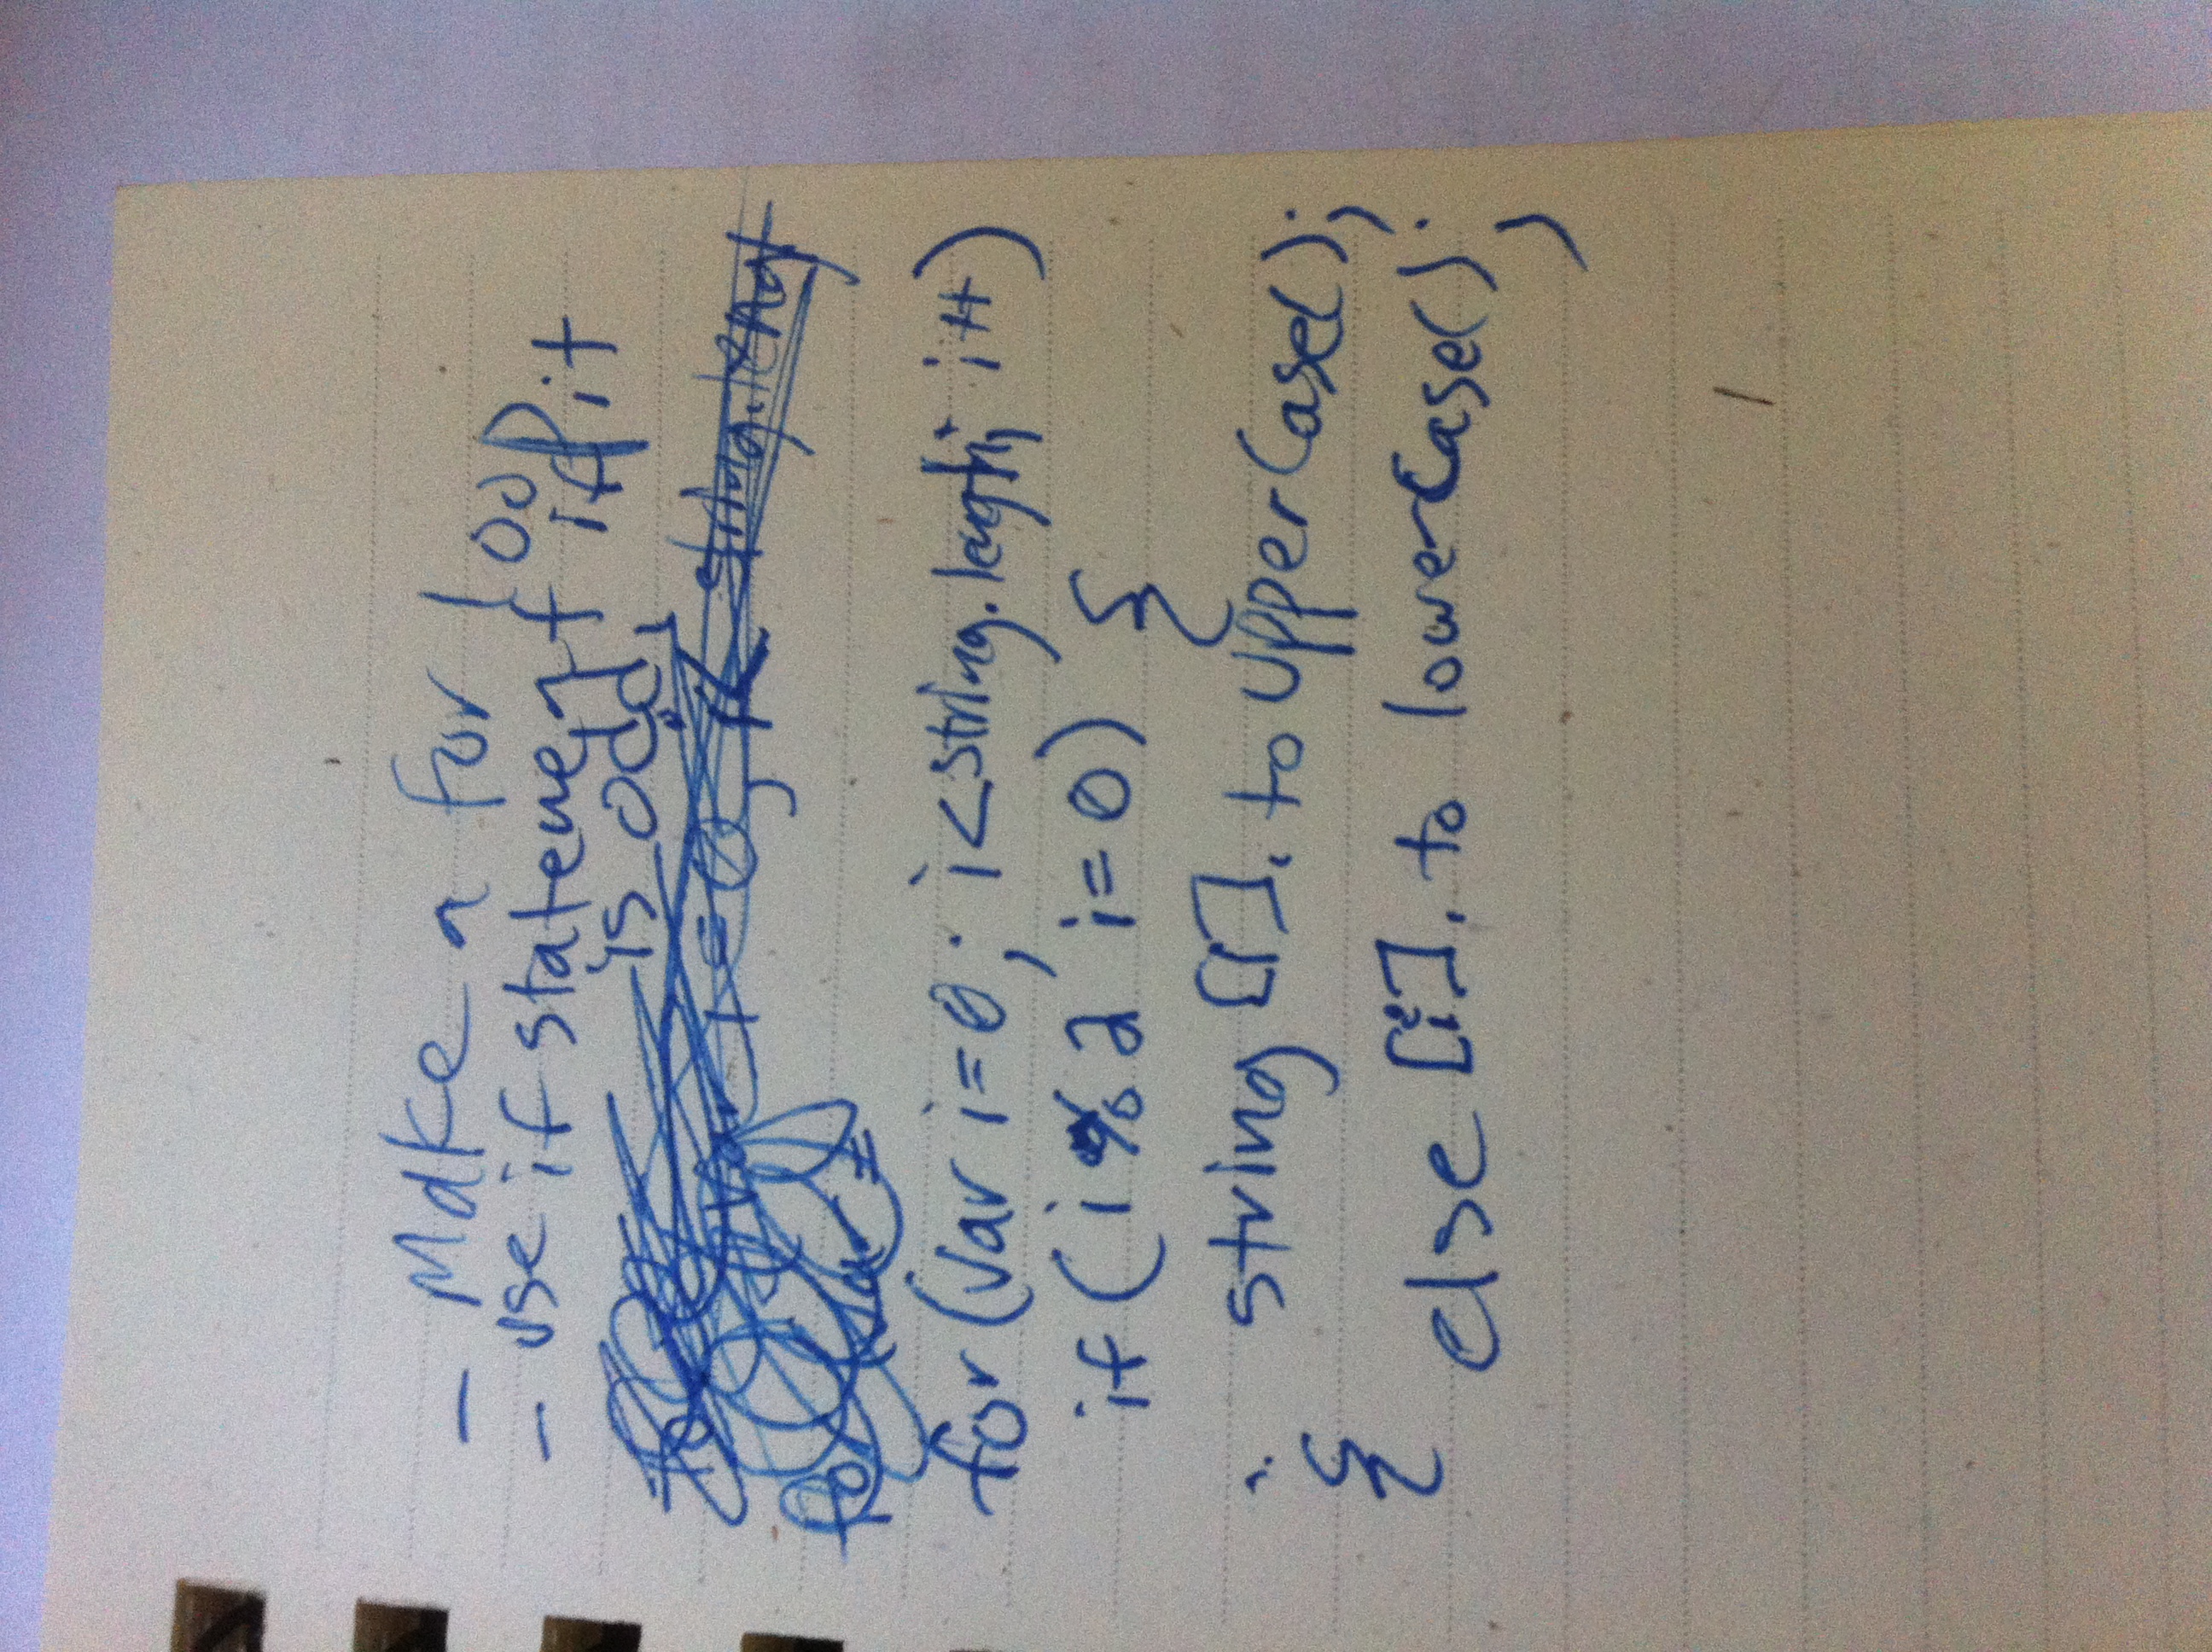 - Make a for loop
- use if statement if it
is odd,
var i = 0, i< string.leng
for (var =
for (var i=0; i<string.length; i++)
if (i % 2 i= 0) {
string [i]. to UpperCase();
{
else [i]. to lowerCase();